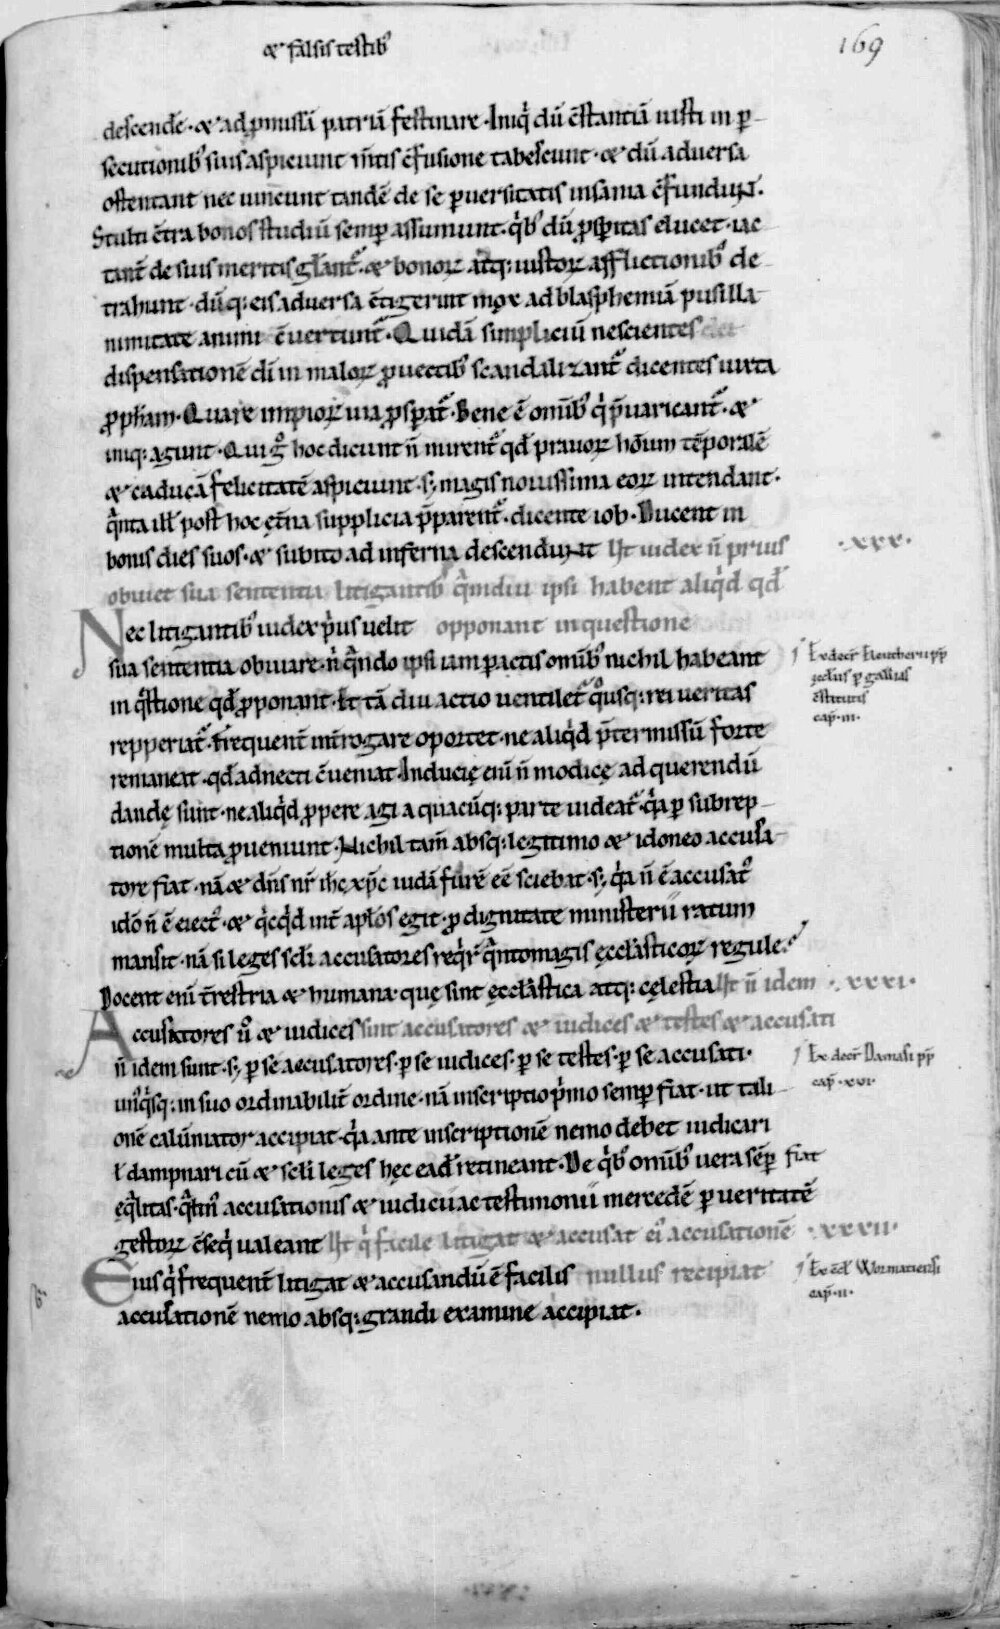 & falsis testib᷒
169
descend̄e · & ad ꝓmissā patriā festinare · Iniq̇ dū c̄stantiā iusti in ꝑ-
secutionib᷒ suis aspiciunt m̄tis c̄fusione tabescunt · & dū adversa
ostentant nec vincunt tandē de se ꝑversitatis insania c̄fundunt.
Stulti c̄tra bonos studiū semꝑ assumunt · q̇b᷒ dū ꝓsꝑitas elucet · iac
tant̄ de suis meritis gl̄ant᷒ · & bonoꝝ atq: iustoꝝ afflictionib᷒ de-
trahunt · dūq: eis adversa c̄tigerint mox ad blasphemiā pusilla-
nimitate animi c̄vertunt᷒ · Quidā simpliciū nescientes dei
dispensationē dī in maloꝝ ꝓvectib᷒ scandalizant᷒ dicentes iuxta
ꝓpham · Quare impioꝝ via ꝓsꝑat᷒ · Bene ē omīb᷒ q̇ p̄varicant᷒ · &
iniq: agunt · Qui gͦ hoc dicunt n̄ mirent᷒ qđ pravoꝝ hōum tēporalē
& caducā felicitatē aspiciunt · s; magis novissima eoꝝ intendant ·
q̄nta ill̄ post hoc ęt̄na supplicia p̄parent᷒ · dicente iob · Ducent in
bonis dies suos · & subito ad inferna descendunt ħt iudex n̄ prius · xxx ·
obviet sua sententia litigantib᷒ q̄mdiu ipsi habent aliq̇d qđ
Nec litigantib᷒ iudex ṗus velit opponant in questione
sua sententia obviare · n̄ q̄ndo ipsi iam ꝑactis omīb᷒ nichil habeant
in q̄stione qđ ꝓponant · Et tā diu actio ventilet᷒ qͦusq: rei veritas
repperiat᷒ · frequent̄ int̄rogare oportet · ne aliq̇d p̄termissū forte
remaneat · qđ adnecti c̄veniat · Induciē enī n̄ modicę ad querendū
dandę sunt · ne aliq̇d ꝓpere agi a quacūq: parte videat᷒ · q̇a ꝑ subrep-
tionē multa ꝓveniunt · Nichil tam̄ absq: legitimo & idoneo accusa-
tore fiat · nā & dn̄s nr̄ ih̄c xp̄c iudā furē eē sciebat · s; q̇a n̄ ē accusat᷒
idō n̄ ē eiect᷒ · & q̇cq̇d int̄ apl̄os egit · ꝓ dignitate ministerii ratum
mansit · nā si leges scl̄i accusatores reqr̄ q̄ntomagis ęccl̄asticoꝝ regule ·
Docent enī t̄restria & humana · quę sint ęccl̄astica atq: cęlestia ħt n̄ idem · xxxi ·
Accusatores v̊ & iudices sint accusatores & iudices & testes & accusati
n̄ idem sunt · s; ꝑ se accusatores · ꝑ se iudices · ꝑ se testes · ꝑ se accusati ·
un᷒q̇sq: in suo ordinabilit̄ ordine · nā inscriptio ṗmo semꝑ fiat · ut tali-
onē calūniator accipiat · q̇a ante inscriptionē nemo debet iudicari
ł dampnari cū & scl̄i leges hęc eađ retineant · De q̇b᷒ omīb᷒ vera sēꝑ fiat
ęq̄litas · q̄tin᷒ accusationis & iudicii ac testimonii mercedē ꝑ veritatē
gestoꝝ c̄seq̇ valeant ħt q̇ facile litigat & accusat ei᷒ accusationē · xxxii ·
Eius q̇ frequent̄ litigat & accusandū ē facilis nullus recipiat
accusationē nemo absq: grandi examine accipiat ·
Ex decr̄ Eleutherii pp̄
cap̄ · iii ·
Ex decr̄ Damasi pp̄
cap̄ · xvi ·
Ex c̄cł Wormatiensi
cap̄ · ii ·